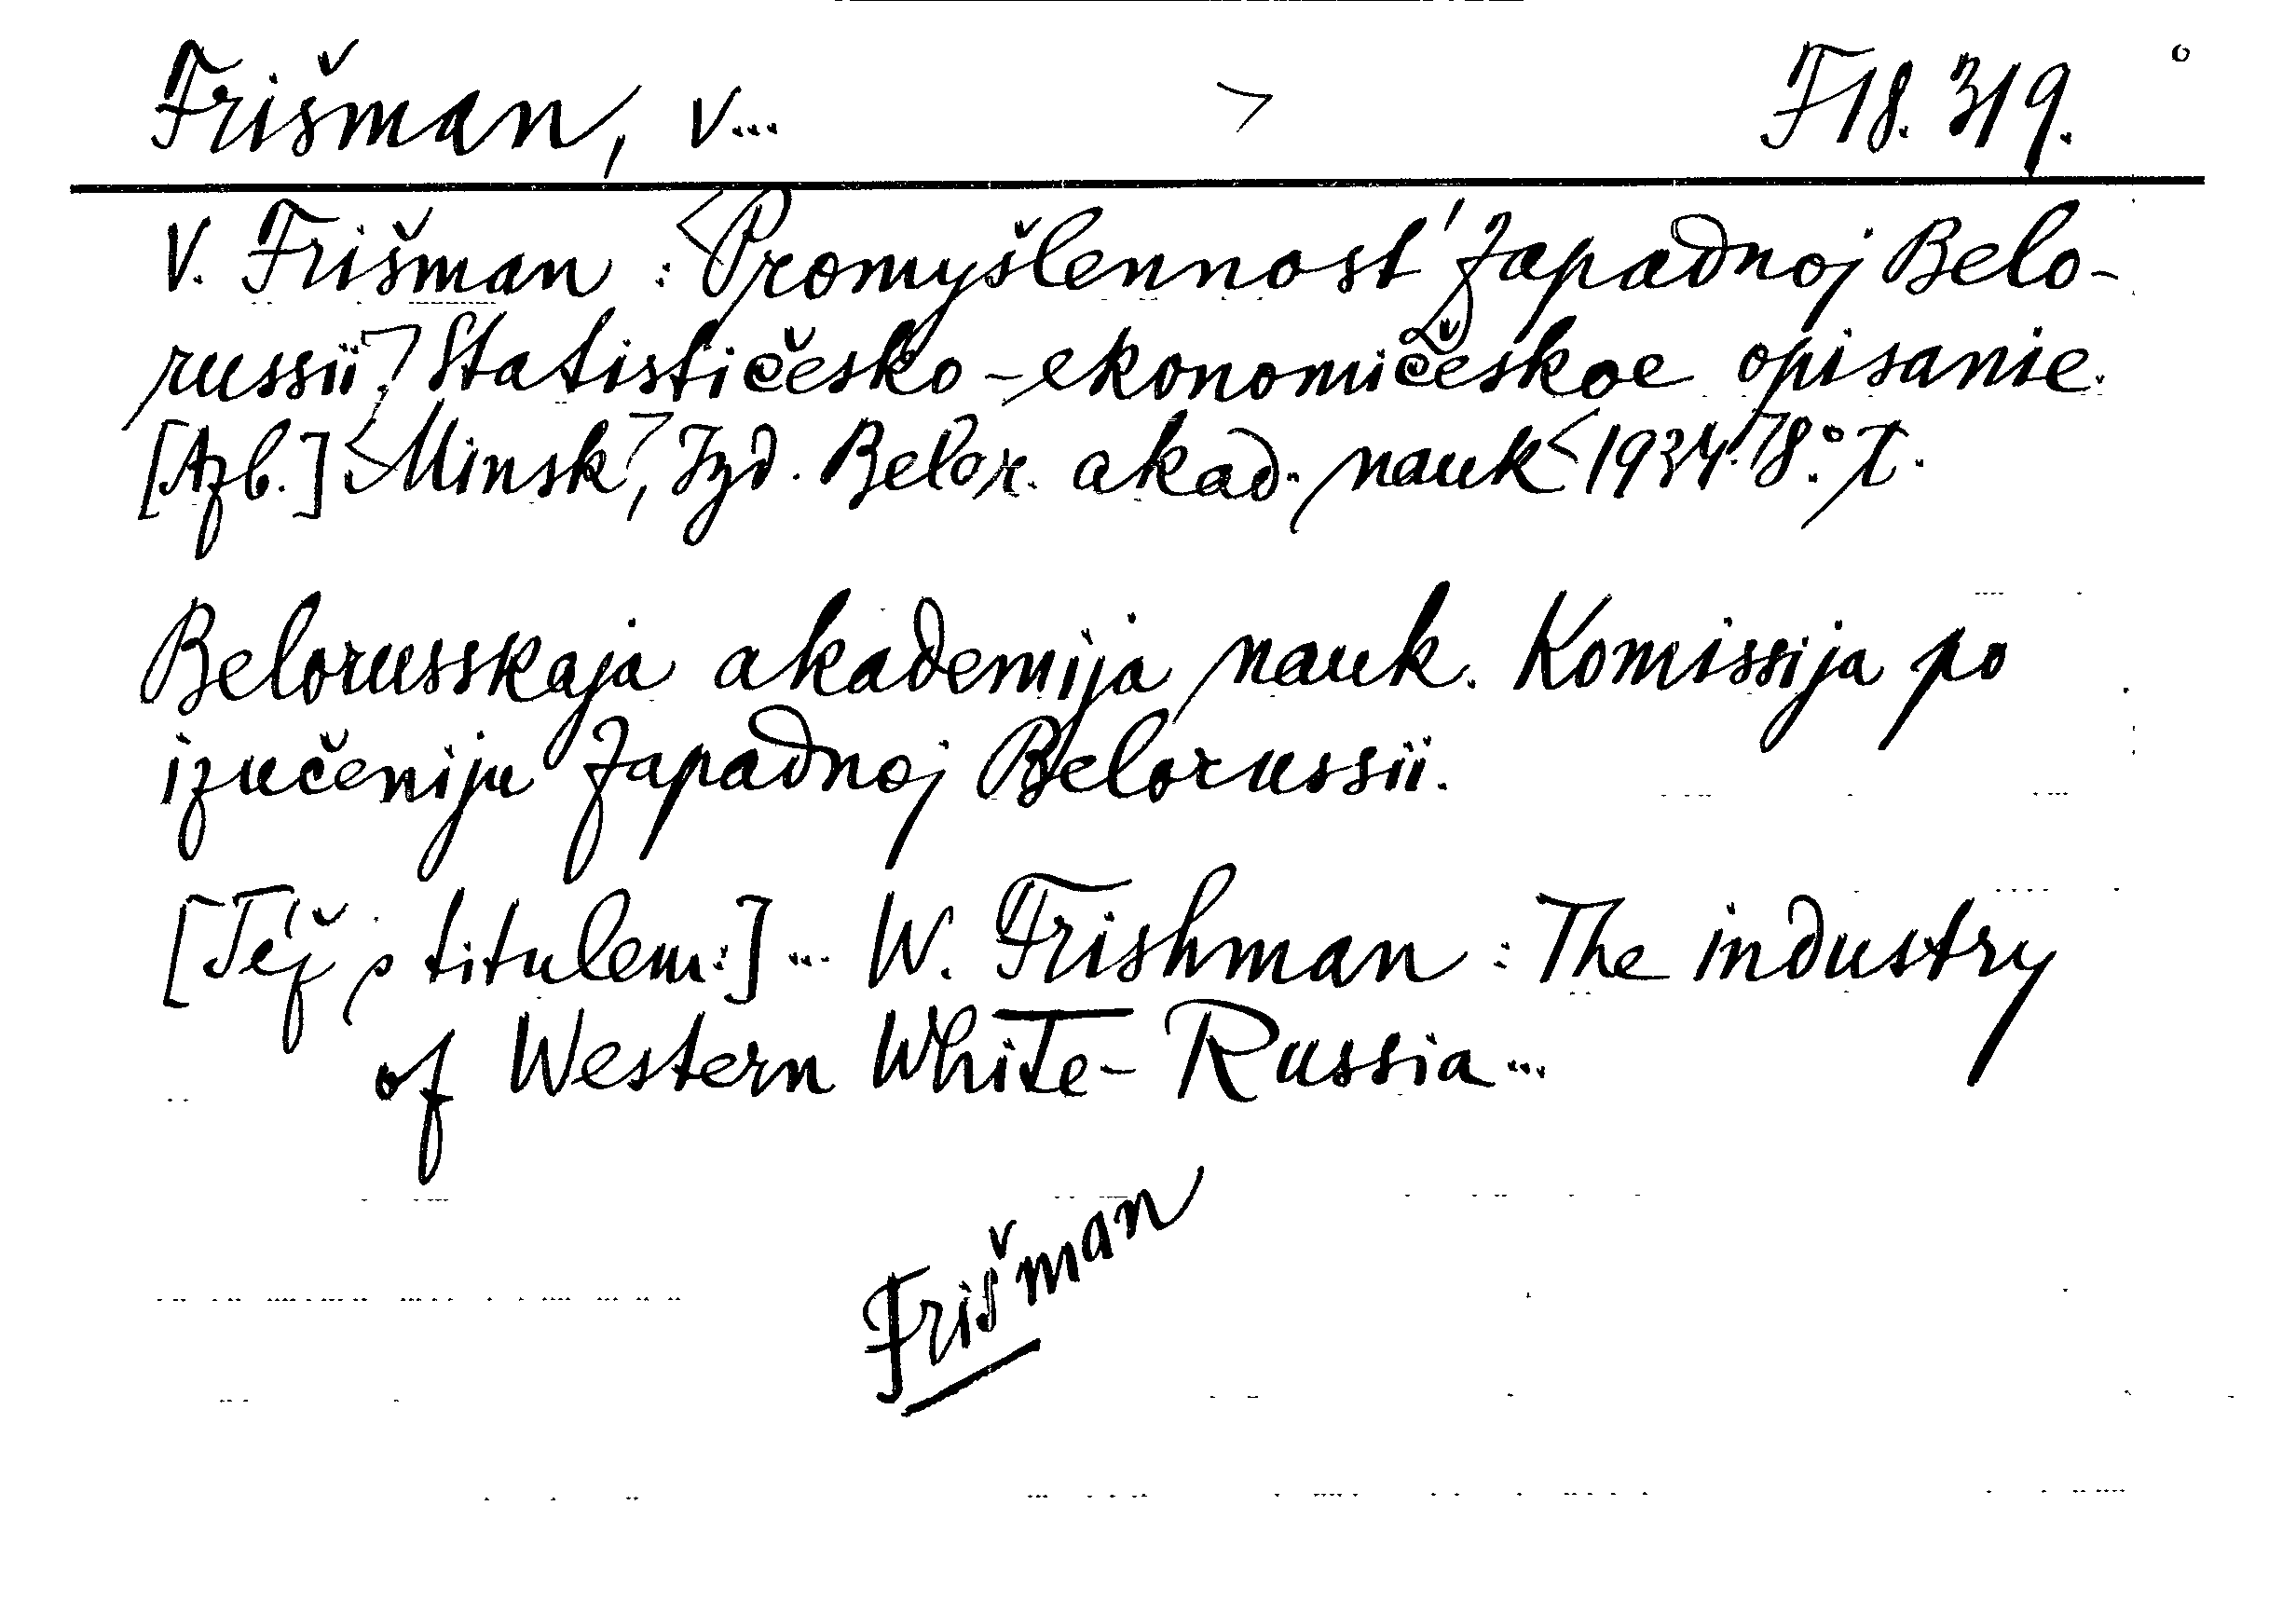 Frišman, V... > F 18. 319.
V. Frišman : <Promyšlennost' Zapadnoj Belo-
russii.> Statističesko-ekonomičeskoe opisanie.
[Azb.] <Minsk>, Izd. Belor. akad. nauk <1934.> 8.° T.
Belorusskaja akademija nauk. Komissija po
izučeniju Zapadnoj Belorussii.
[Též s titulem:] ... W. Frishman : The industry
of Western White-Russia ...
Frišman